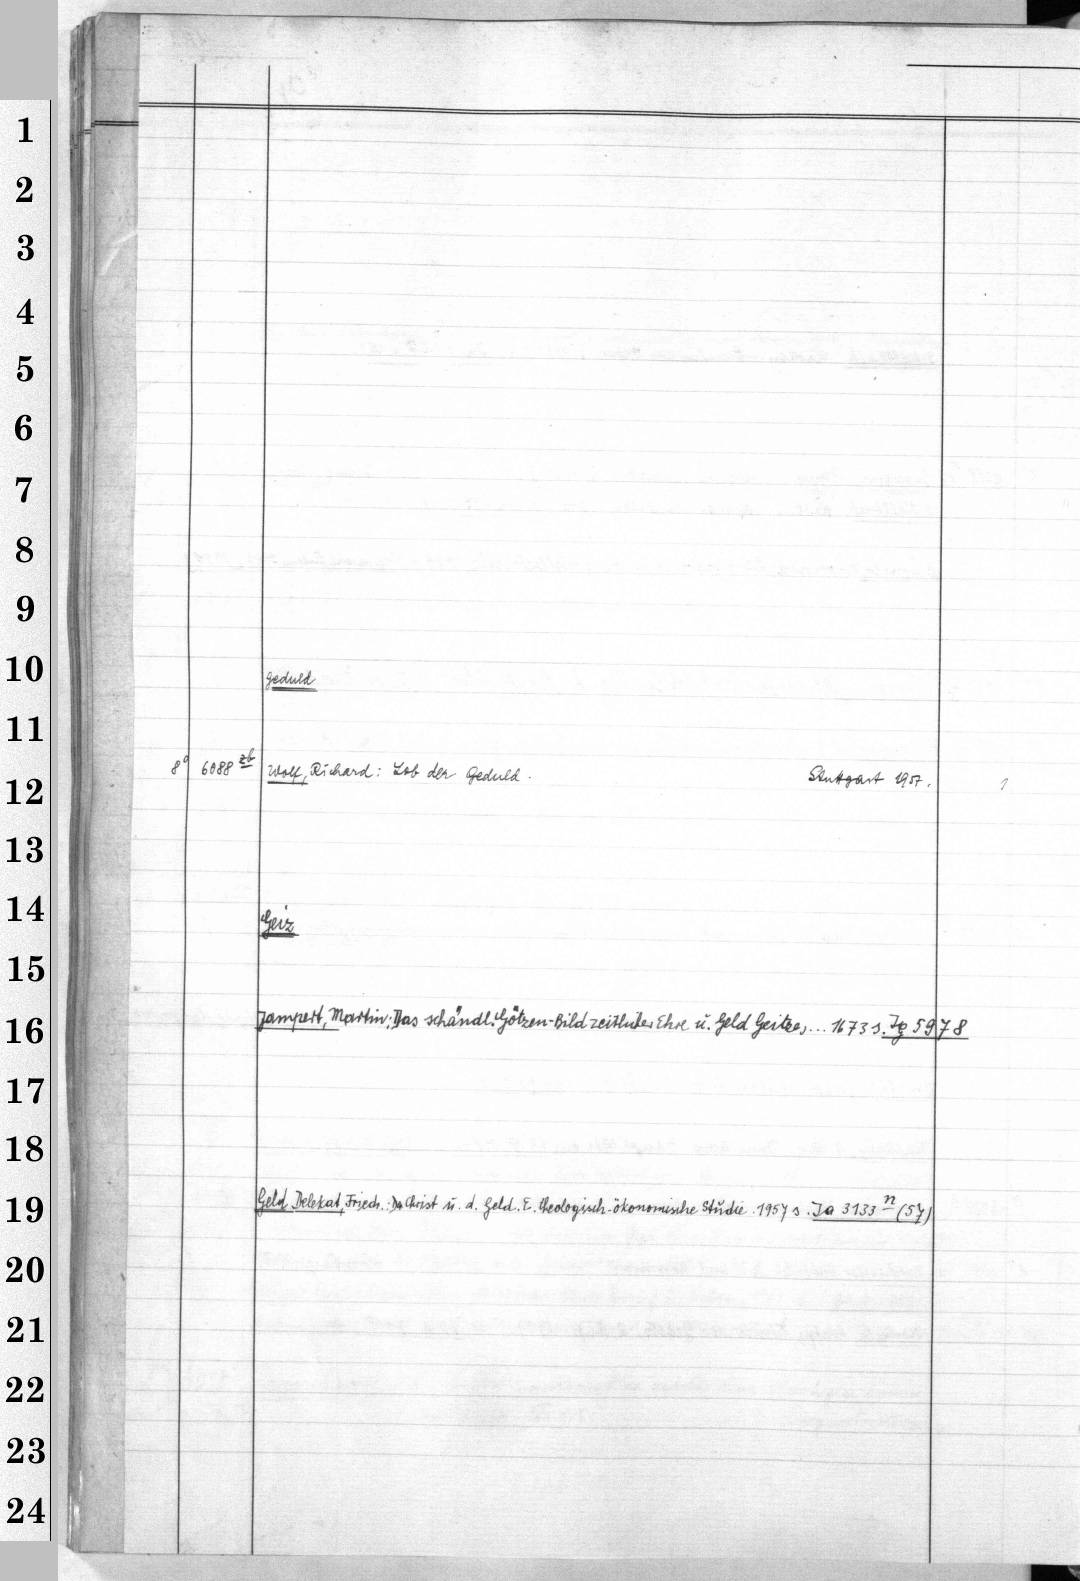 1
2
3
4
5
6
7
8
9
10
11
12
13
14
15
16
17
18
19
20
21
22
23
24
Geduld
8° 6088 zb Wolf, Richard: Lob der Geduld. Stuttgart 1957. 1
Geiz
Jampert, Martin: Das schändl. Götzen-Bild zeitlicher Ehre u. Geld Geitzes ... 1673 s. Jg 5978
Geld Delekat, Friedr.: Der Christ u. d. Geld. E. theologisch-ökonomische Studie. 1957 s. Ja 3133 n (57)